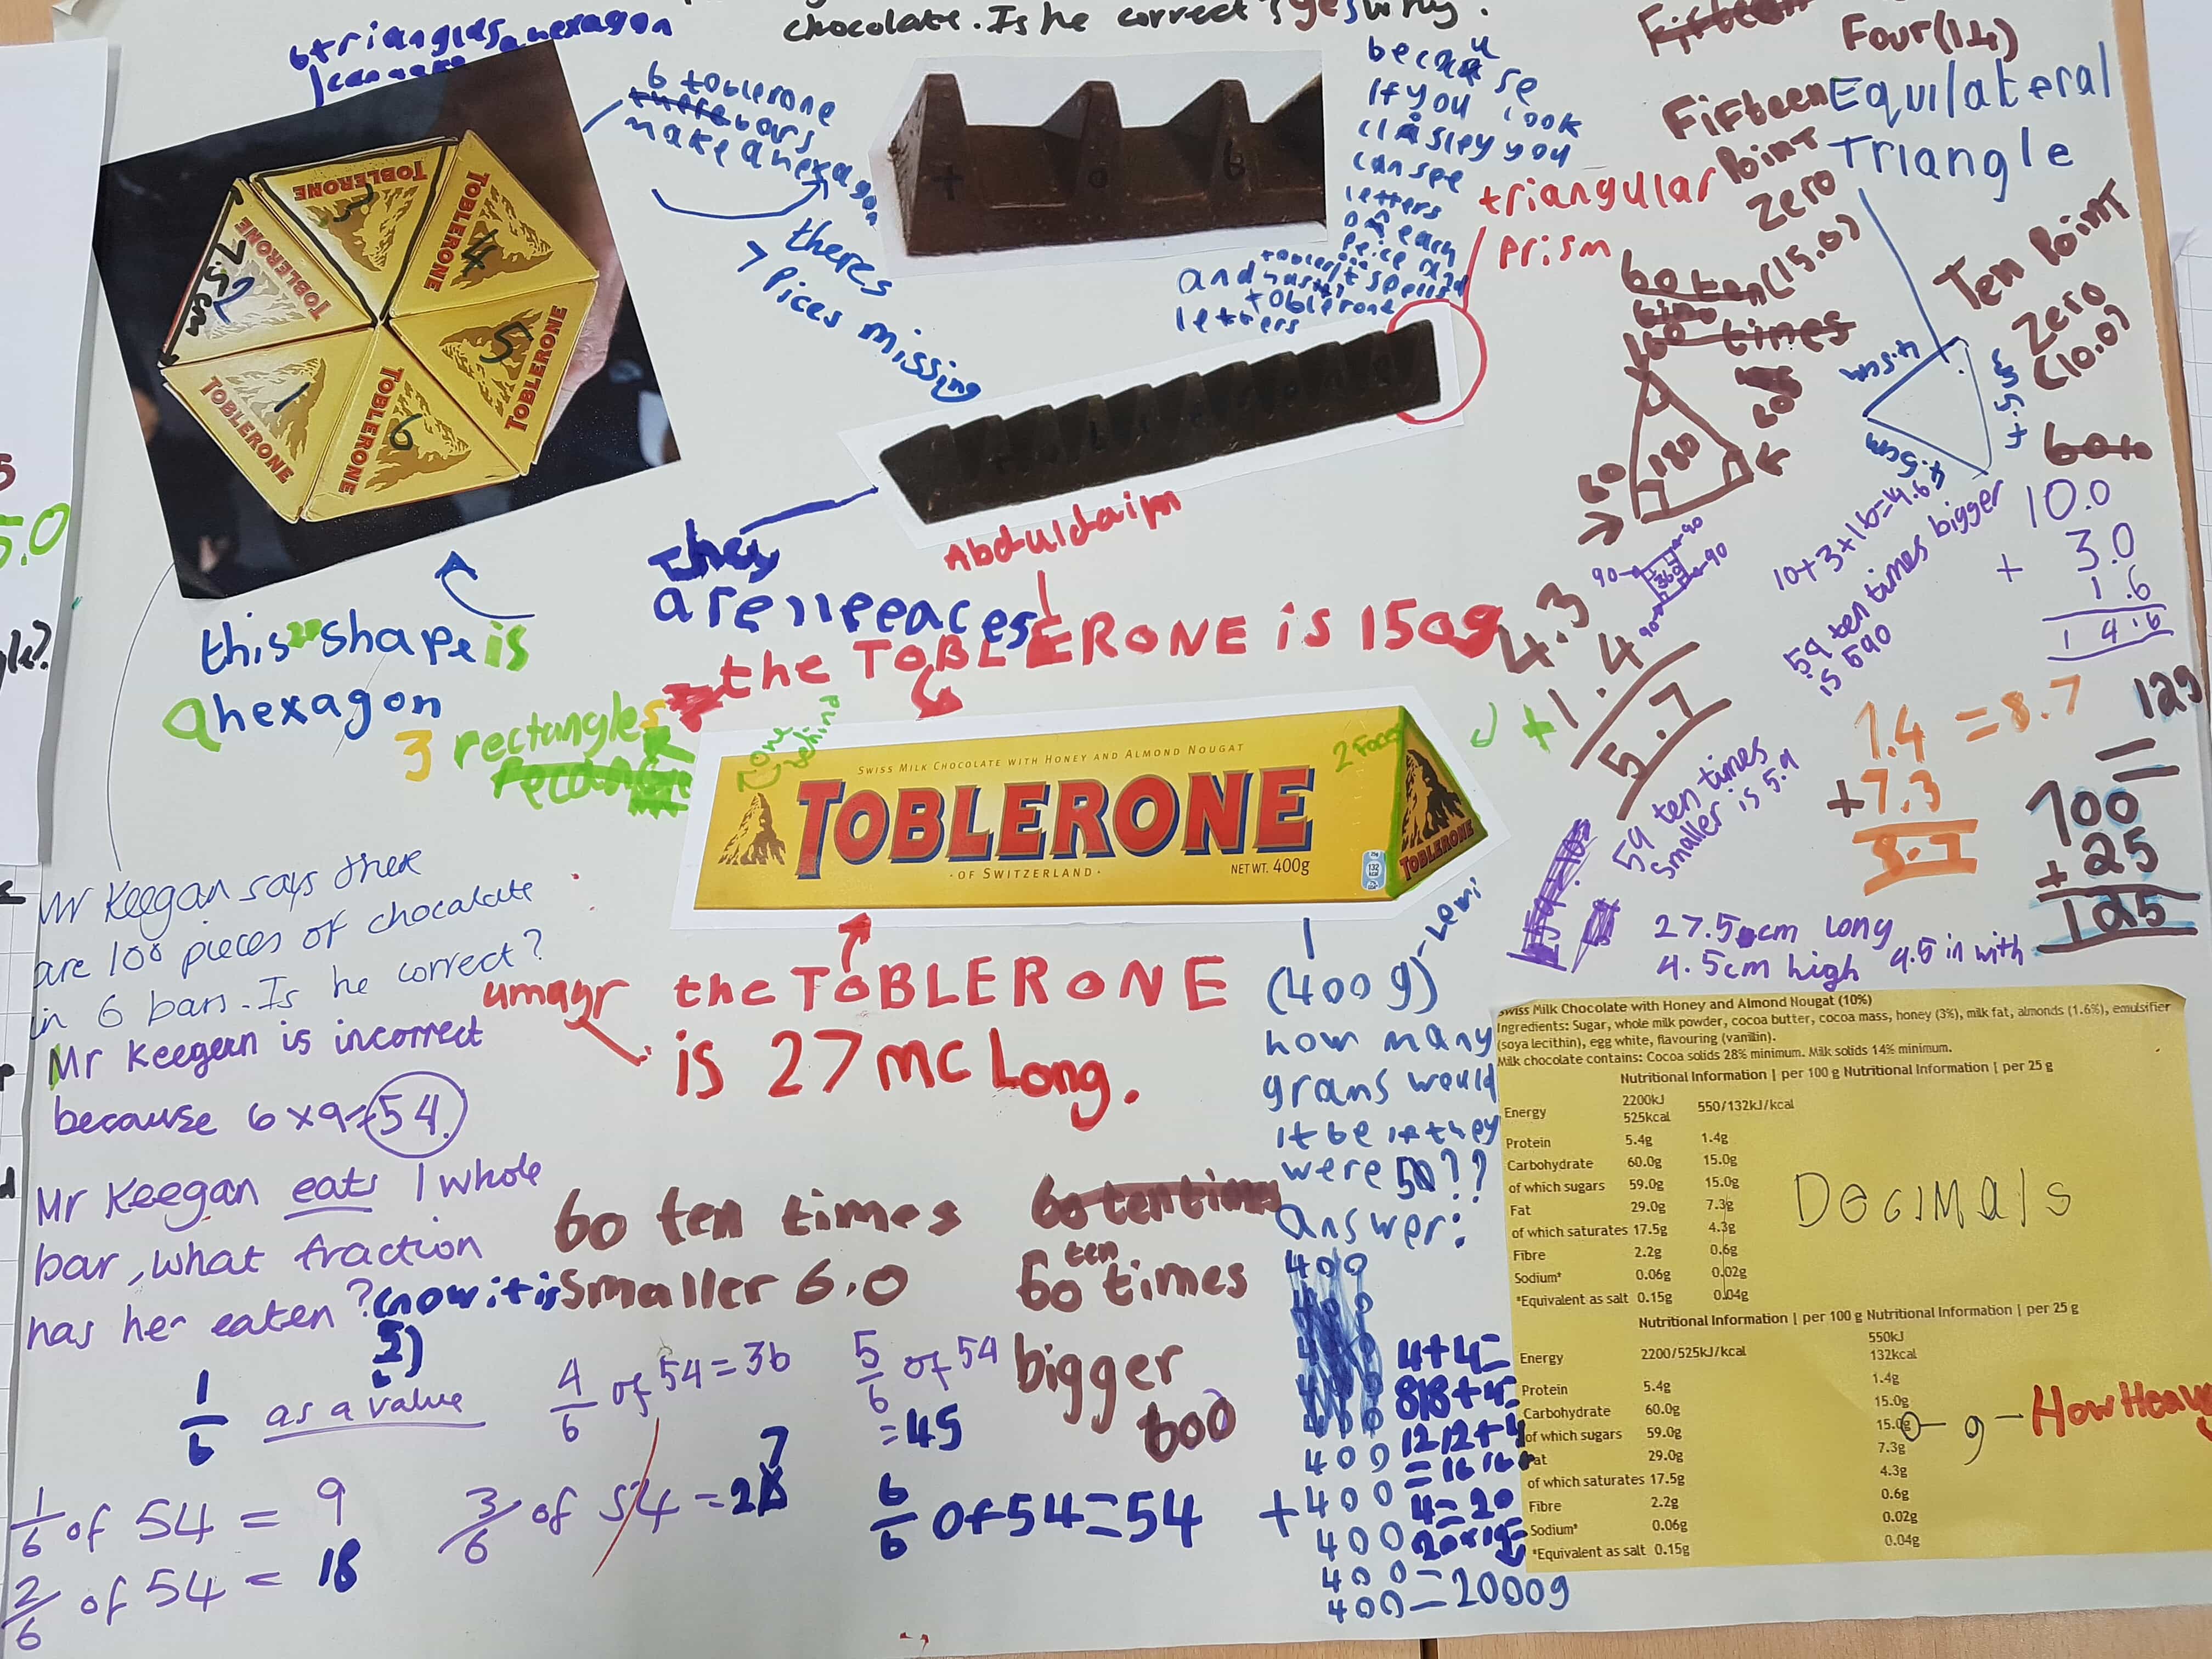 chocolate. Is he correct? yes why?
6 triangles a hexagon
6 toblerone
bars
make a hexagon
theres
7 pices missing
because
if you look
closley you
can see
letters
on each
peice and
and has
it spells
toblerone
letters
triangular
prism
Fifteen
Four (14)
Fifteen
Point
Zero
(15.0)
Equilateral
Triangle
Ten Point
Zero
(10.0)
4.5cm
4.5cm
4.5cm
60 ten
times
60
180
60
90
90
90
360
TOBLERONE
1
TOBLERONE
2
7.5cm
TOBLERONE
3
TOBLERONE
4
TOBLERONE
5
TOBLERONE
6
T
O
B
this 2D shape is
a hexagon
They
are 11 peaces
Abduldaim
the TOBLERONE is 150g
3 rectangles
rectangle
1 one
behind
2 Faces
SWISS MILK CHOCOLATE WITH HONEY AND ALMOND NOUGAT
TOBLERONE
· OF SWITZERLAND ·
NET WT. 400g
TOBLERONE
4.3
+ 1.4
5.7
10+3+1.6=14.6
59 ten times bigger
is 590
10.0
+ 3.0
1.6
14.6
59 ten times
smaller is 5.9
1.4 = 8.7
+7.3
8.7
125
=
100
+ 25
125
27.5cm long
4.5cm high 4.5 in with
Mr Keegan says there
are 100 pieces of chocalate
in 6 bars. Is he correct?
Mr Keegan is incorrect
because 6 x 9 = 54.
Mr Keegan eats 1 whole
bar, what fraction
has her eaten?
now it is
1/6 as a value
1/6 of 54 = 9
2/6 of 54 = 18
3/6 of 54 = 27
4/6 of 54 = 36
5/6 of 54
= 45
6/6 of 54 = 54
umayr
the TOBLERONE
is 27 mc Long.
60 ten times
smaller 6.0
60 ten times
60 ten times
bigger
600
(400g) - Lewi
how many
grams would
it be if they
were 50??
answer:
400
400
400
400
400
400
+400
400
400
400 = 2000g
4+4=
8 8+4=
12 12+4
=16 16+
4=20
Swiss Milk Chocolate with Honey and Almond Nougat (10%)
Ingredients: Sugar, whole milk powder, cocoa butter, cocoa mass, honey (3%), milk fat, almonds (1.6%), emulsifier
(soya lecithin), egg white, flavouring (vanillin).
Milk chocolate contains: Cocoa solids 28% minimum. Milk solids 14% minimum.
Nutritional Information | per 100 g Nutritional Information | per 25 g
Energy 2200kJ 550/132kJ/kcal
525kcal
Protein 5.4g 1.4g
Carbohydrate 60.0g 15.0g
of which sugars 59.0g 15.0g
Fat 29.0g 7.3g
of which saturates 17.5g 4.3g
Fibre 2.2g 0.6g
Sodium* 0.06g 0.02g
*Equivalent as salt 0.15g 0.04g
Decimals
Nutritional Information | per 100 g Nutritional Information | per 25 g
Energy 2200/525kJ/kcal 550kJ
132kcal
Protein 5.4g 1.4g
Carbohydrate 60.0g 15.0g
of which sugars 59.0g 15.0g
Fat 29.0g 7.3g
of which saturates 17.5g 4.3g
Fibre 2.2g 0.6g
Sodium* 0.06g 0.02g
*Equivalent as salt 0.15g 0.04g
g - How Heavy